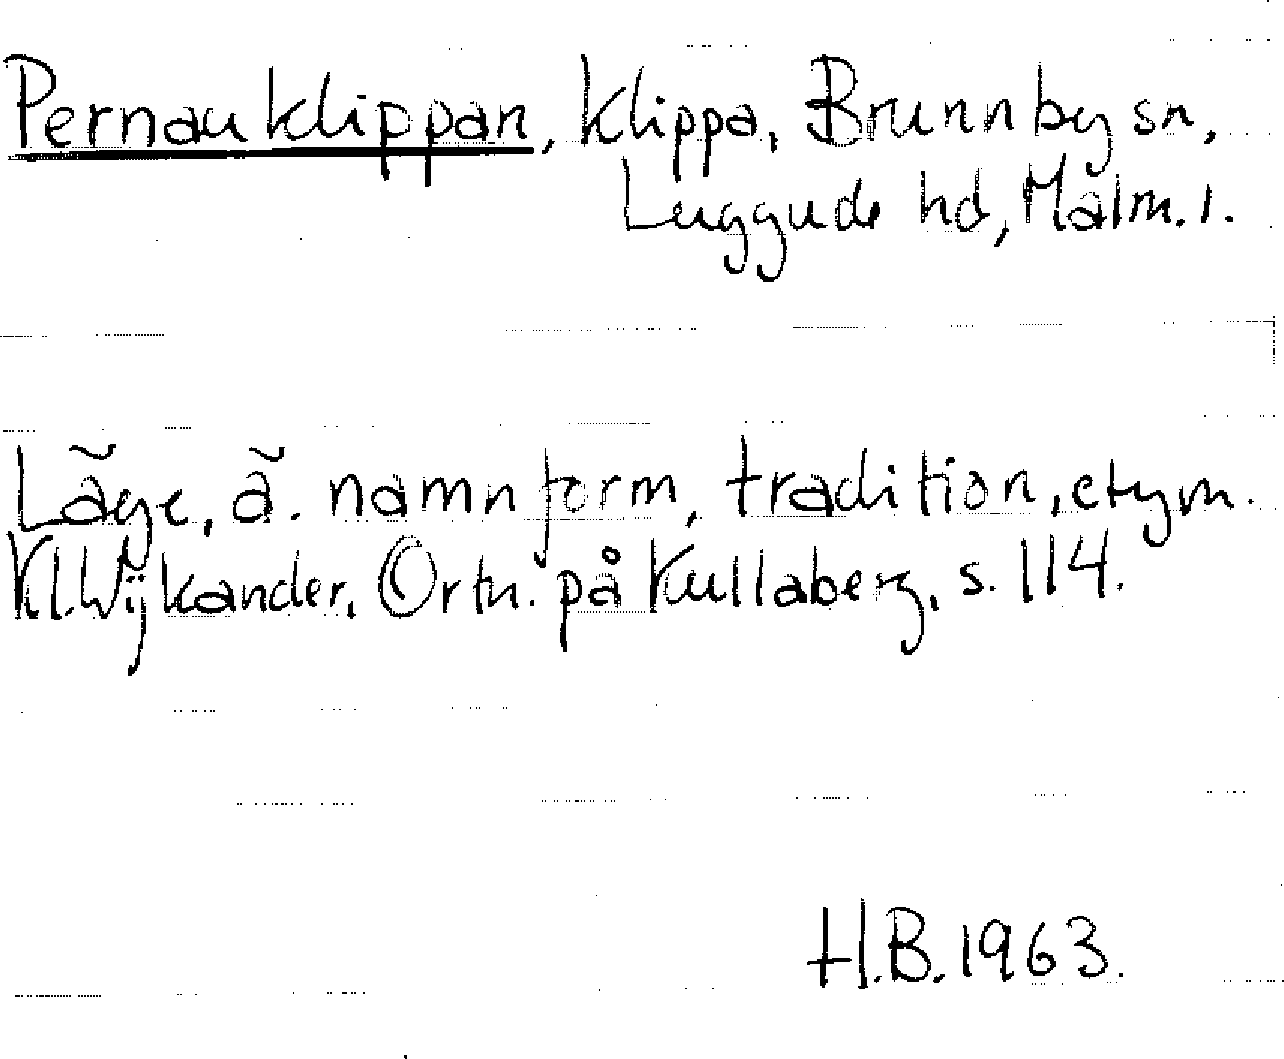 Pernauklippan, klippa, Brunnby sn,
Luggude hd, Malm. l.
Läge, ä. namnform, tradition, etym.
Kl. Wijkander, Ortn. på Kullaberg, s. 114.
H.B. 1963.